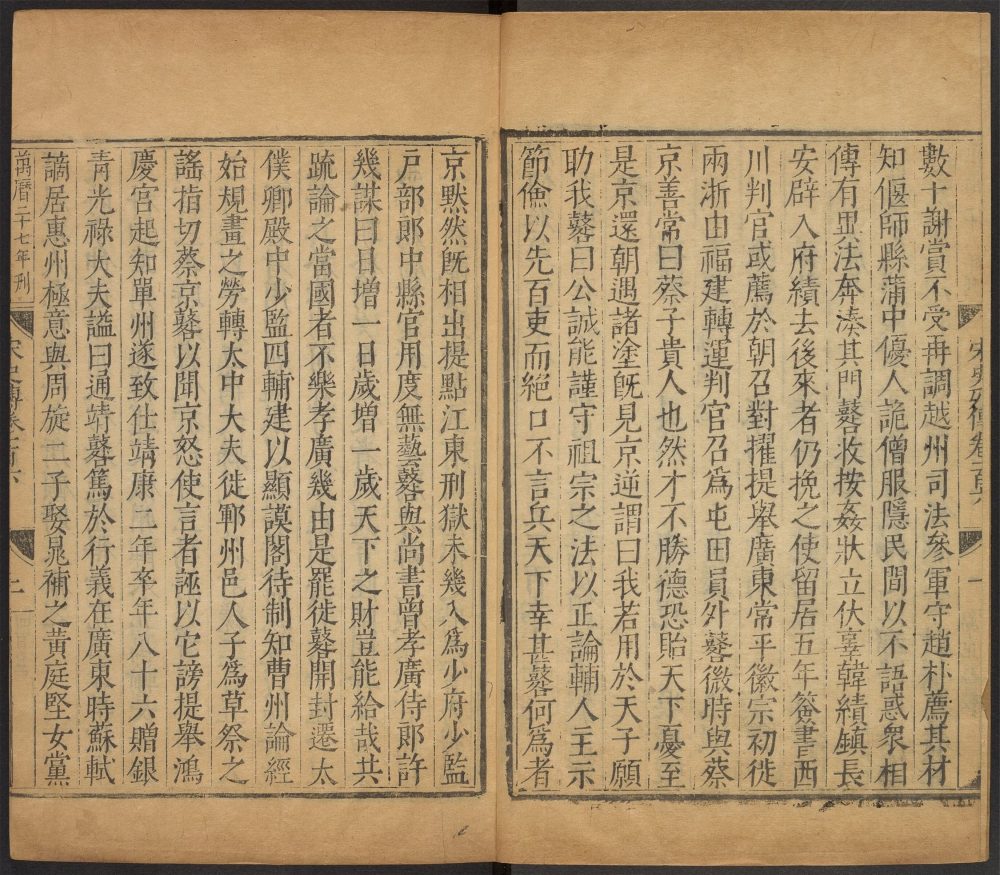 數十謝賞不受再調越州司法參軍守趙朴薦其材
知偃師縣蒲中優人詭僧服隱民間以不語惑衆相
傳有異法奔湊其門蕣收按姦狀立伏辜韓績鎮長
安辟入府績去後來者仍挽之使留居五年簽書西
川判官或薦於朝召對擢提舉廣東常平徽宗初徙
兩浙由福建轉運判官召爲屯田員外蕣微時與蔡
京善常曰蔡子貴人也然才不勝德恐貽天下憂至
是京還朝遇諸塗旣見京逆謂曰我若用於天子願
助我蕣曰公誠能謹守祖宗之法以正論輔人主示
節儉以先百吏而絕口不言兵天下幸甚蕣何爲者
京默然旣相出提點江東刑獄未幾入爲少府少監
戶部郎中縣官用度無藝蕣與尚書曾孝廣侍郎許
幾謀曰日增一日歲增一歲天下之財豈能給哉共
疏論之當國者不樂孝廣幾由是罷徙蕣開封遷太
僕卿殿中少監四輔建以顯謨閣待制知曹州論經
始規畫之勞轉太中大夫徙鄆州邑人子爲草祭之
謠指切蔡京蕣以聞京怒使言者誣以它謗提舉鴻
慶宮起知單州遂致仕靖康二年卒年八十六贈銀
青光祿大夫謚曰通靖蕣篤於行義在廣東時蘇軾
謫居惠州極意與周旋二子娶晁補之黃庭堅女黨
萬曆二十七年刊